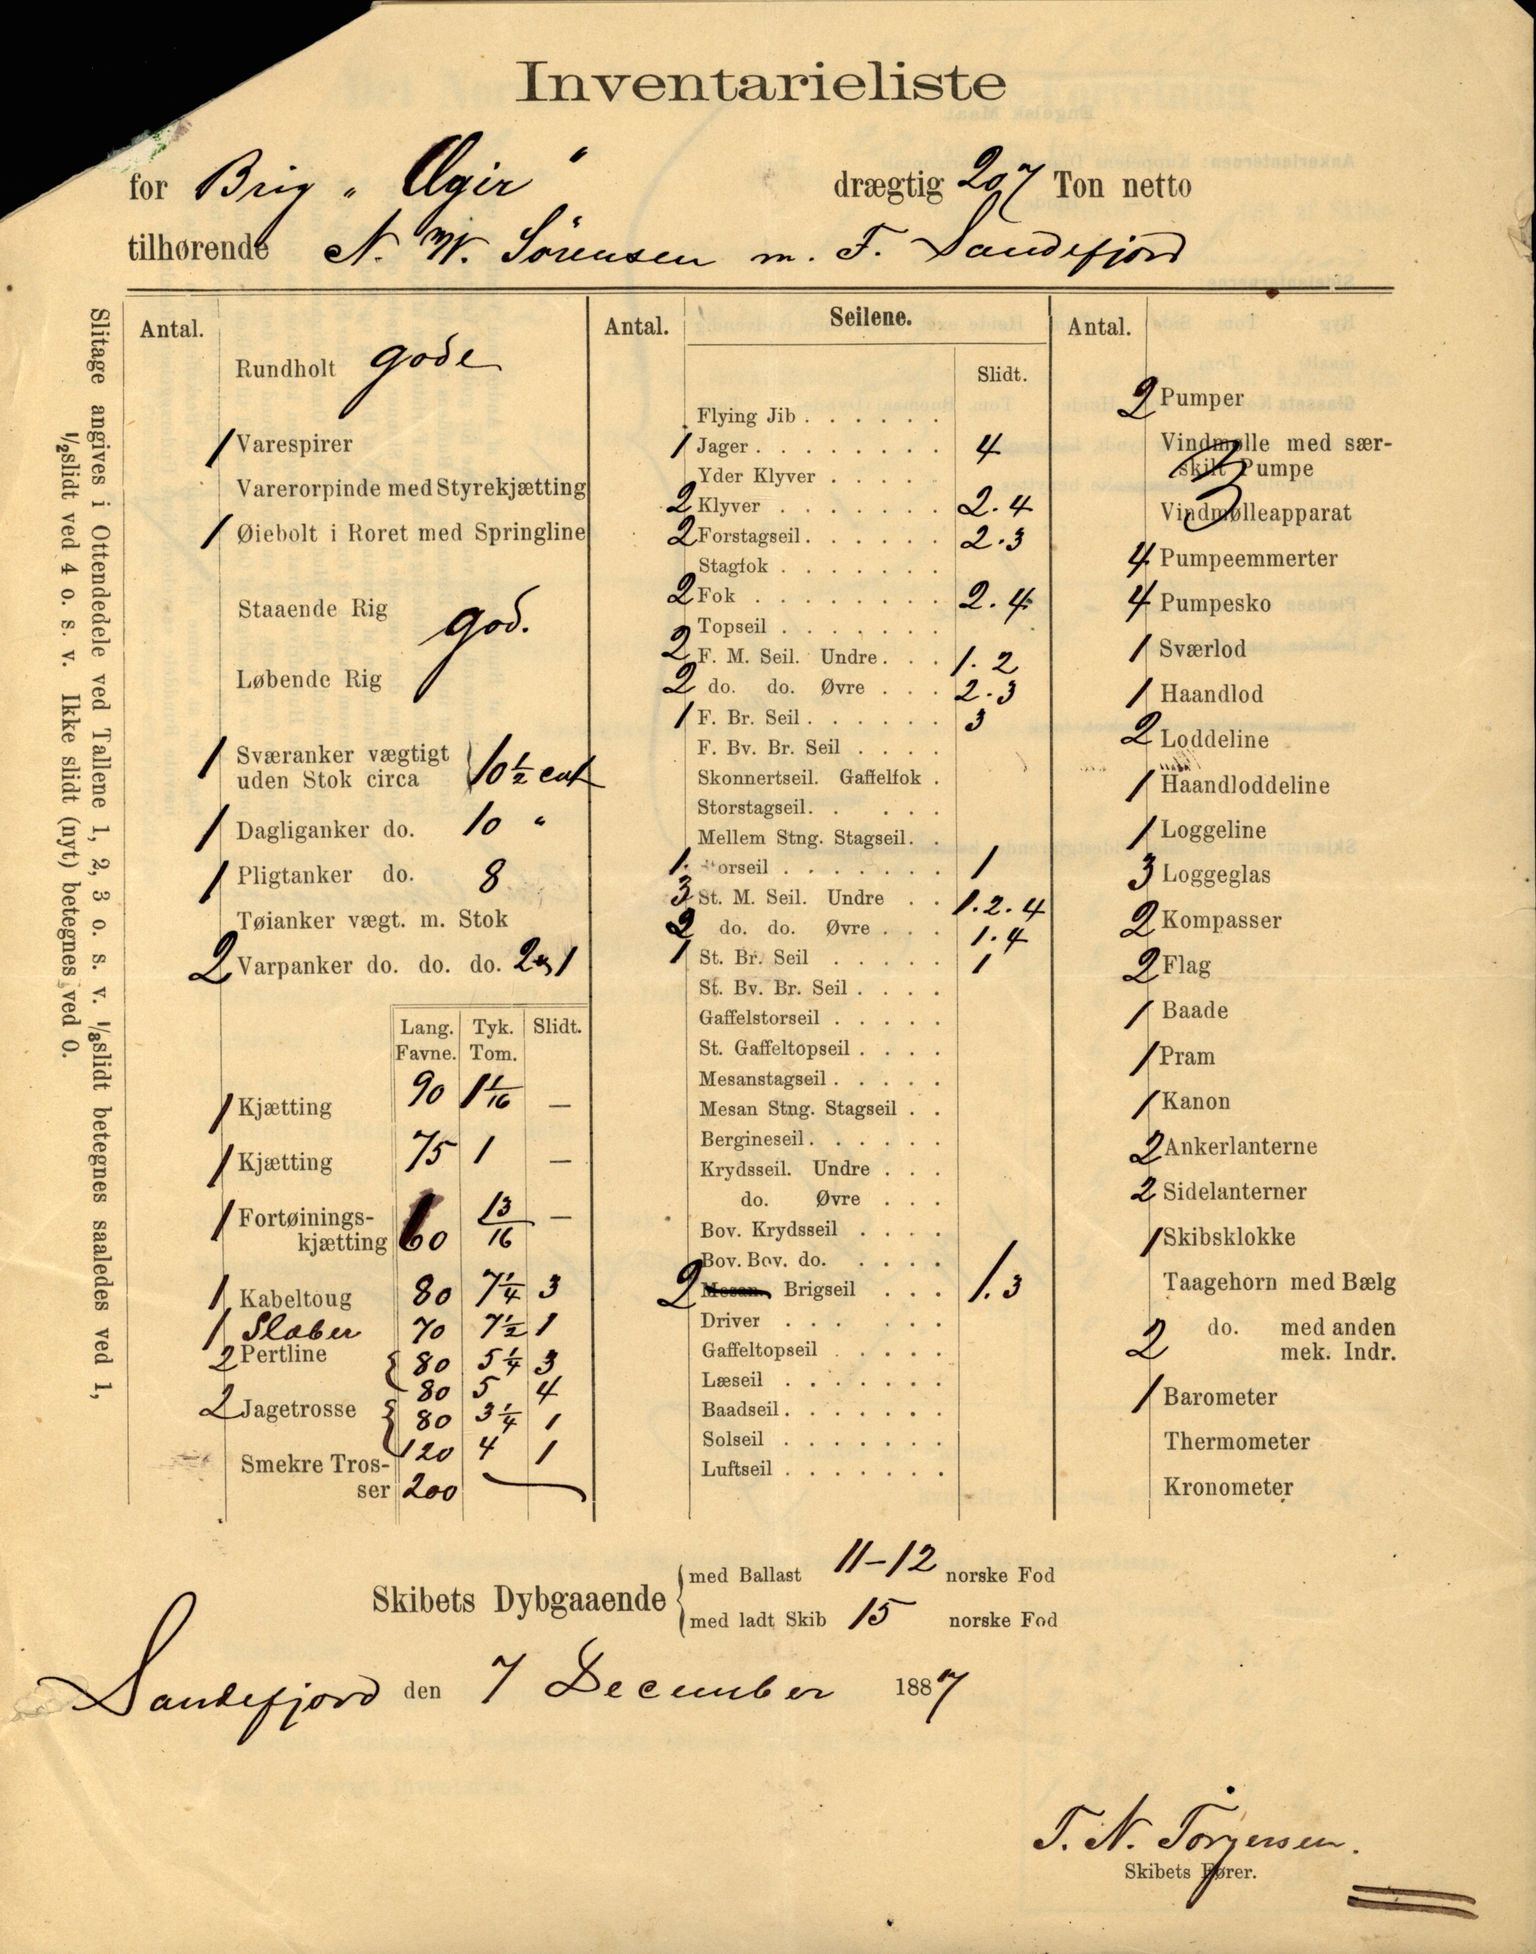 Inventarieliste
for Brig „Ægir" drægtig 207 Ton netto
tilhørende N. W. Sörensen m. F. Sandefjord
Slitage angives i Ottendedele ved Tallene 1, 2, 3 o. s. v. 1/8slidt betegnes saaledes ved 1,
1/2slidt ved 4 o. s. v. Ikke slidt (nyt) betegnes ved 0.
Antal.
Rundholt gode
1 Varespirer
Varerorpinde med Styrekjætting
1 Øiebolt i Roret med Springline
Staaende Rig
god.
Løbende Rig
1 Sværanker vægtigt
uden Stok circa 10 1/2 cwt
1 Dagliganker do. 10 "
1 Pligtanker do. 8
Tøianker vægt. m. Stok
2 Varpanker do. do. do. 2 og 1
Lang. Tyk. Slidt.
Favne. Tom.
1 Kjætting 90 1 1/16 —
1 Kjætting 75 1 —
1 Fortøinings-
kjætting 60 13/16 —
1 Kabeltoug 80 7 1/4 3
1 Slæber 70 7 1/2 1
2 Pertline 80 5 1/4 3
80 5 4
2 Jagetrosse 80 3 1/4 1
120 4 1
Smekre Tros-
ser 200
Antal. Seilene.
Slidt.
Flying Jib
1 Jager 4
Yder Klyver
2 Klyver 2.4
2 Forstagseil 2.3
Stagfok
2 Fok 2.4
Topseil
2 F. M. Seil. Undre 1.2
2 do. do. Øvre 2.3
1 F. Br. Seil 3
F. Bv. Br. Seil
Skonnertseil. Gaffelfok
Storstagseil
Mellem Stng. Stagseil
1. Storseil 1
3 St. M. Seil. Undre 1.2.4
2 do. do. Øvre 1.4
1 St. Br. Seil 1
St. Bv. Br. Seil
Gaffelstorseil
St. Gaffeltopseil
Mesanstagseil
Mesan Stng. Stagseil
Bergineseil
Krydsseil. Undre
do. Øvre
Bov. Krydsseil
Bov. Bov. do.
2 Mesan. Brigseil 1.3
Driver
Gaffeltopseil
Læseil
Baadseil
Solseil
Luftseil
Antal.
2 Pumper
Vindmølle med sær-
skilt Pumpe
3
Vindmølleapparat
4 Pumpeemmerter
4 Pumpesko
1 Sværlod
1 Haandlod
2 Loddeline
1 Haandloddeline
1 Loggeline
3 Loggeglas
2 Kompasser
2 Flag
1 Baade
1 Pram
1 Kanon
2 Ankerlanterne
2 Sidelanterner
1 Skibsklokke
Taagehorn med Bælg
do. med anden
2 mek. Indr.
1 Barometer
Thermometer
Kronometer
Skibets Dybgaaende
med Ballast 11–12 norske Fod
med ladt Skib 15 norske Fod
Sandefjord den 7 December 1887
T. N. Torgersen.
Skibets Fører.